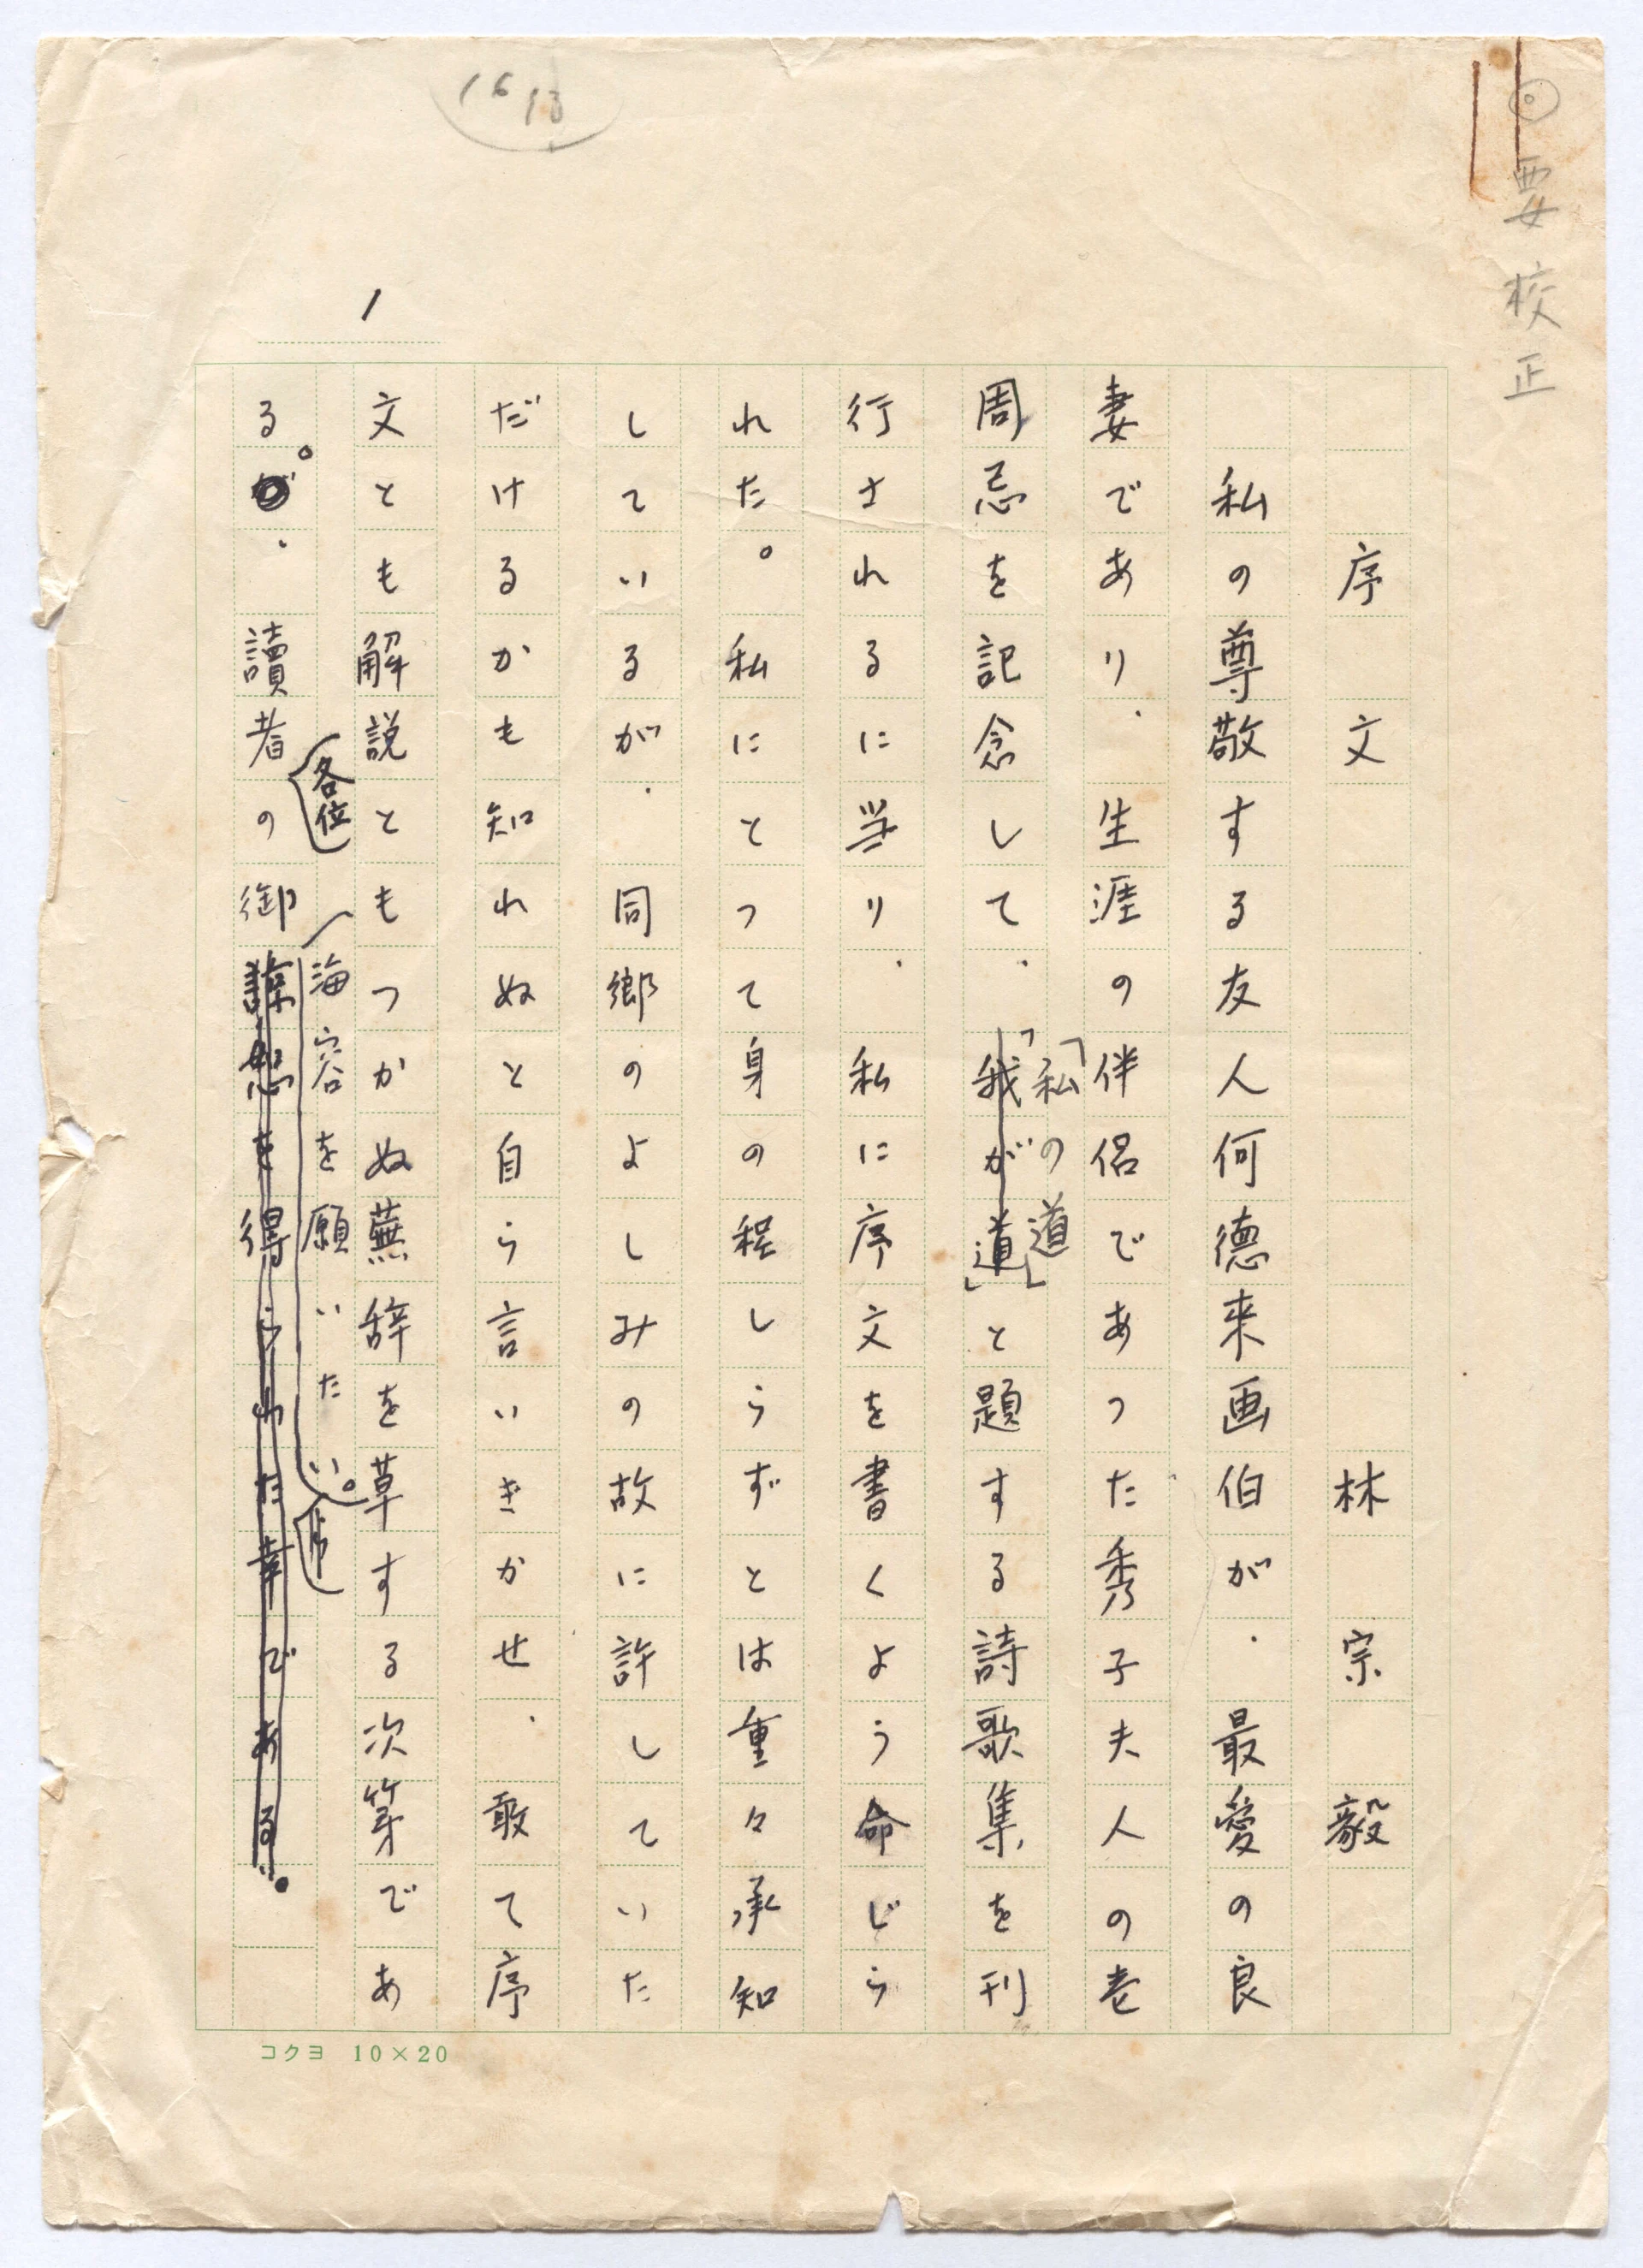 ◎要校正
16 13
1
序文　林宗毅
私の尊敬する友人何德来画伯が、最愛の良
妻であり、生涯の伴侶であつた秀子夫人の壱
「私の道」
周忌を記念して、「我が道」と題する詩歌集を刊
行されるに当り、私に序文を書くよう命じら
れた。私にとつて身の程しらずとは重々承知
しているが、同郷のよしみの故に許していた
だけるかも知れぬと自ら言いきかせ、敢て序
文とも解説ともつかぬ蕪辞を草する次第であ
各位
海容を願いたい。
る。が、讀者の御諒恕を得られた幸である。
コクヨ 10×20